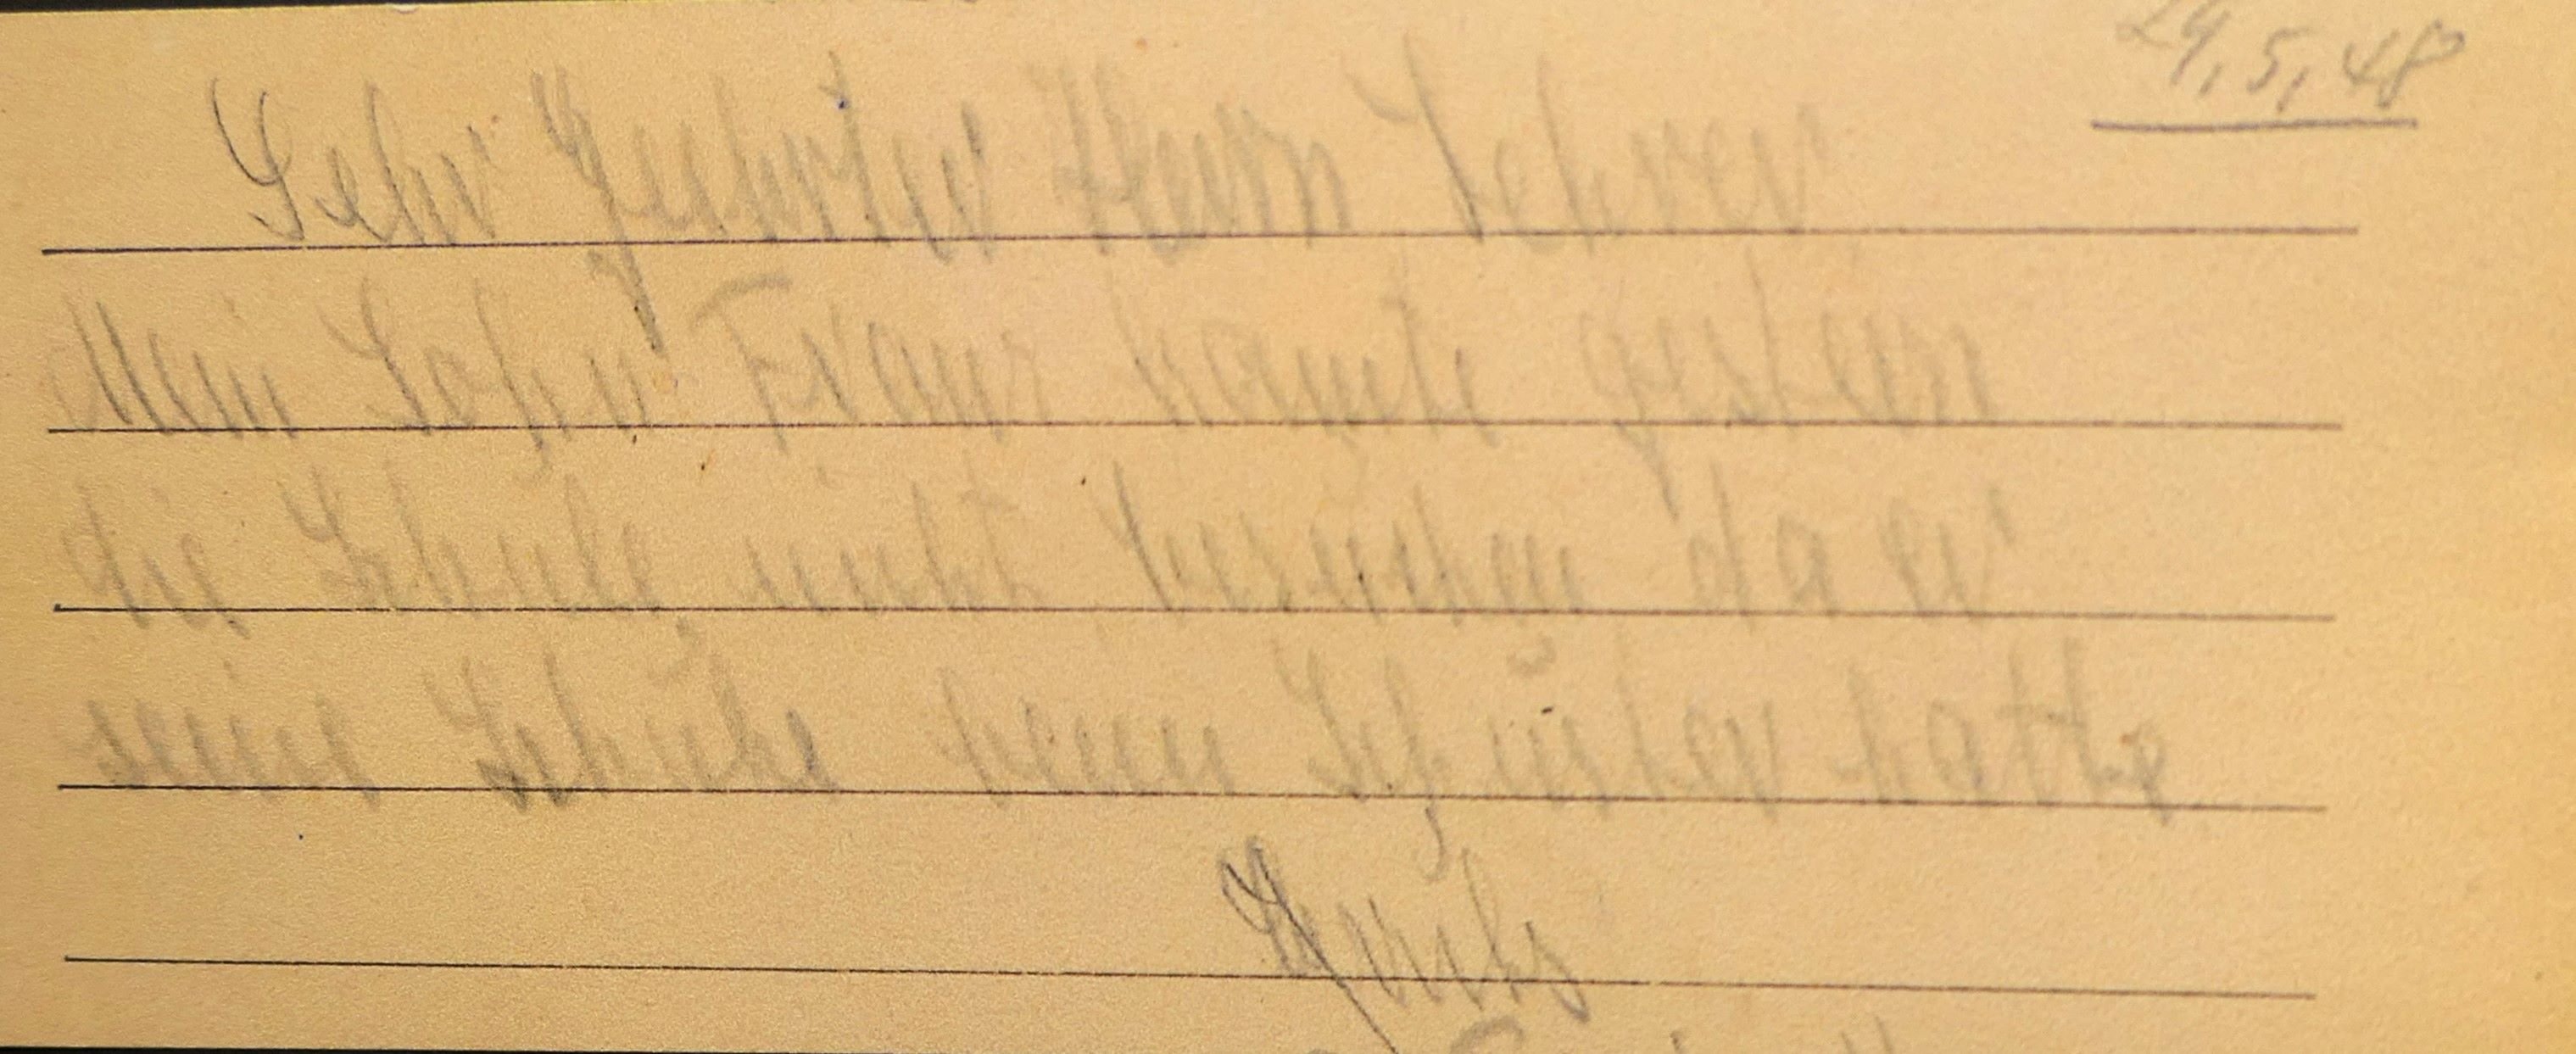 24,5,48
Sehr geehrter Herrn Lehrer
Mein Sohn Franz konnte gestern
die Schule nicht besuchen da er
seine Schuhe beim Schuster hatte